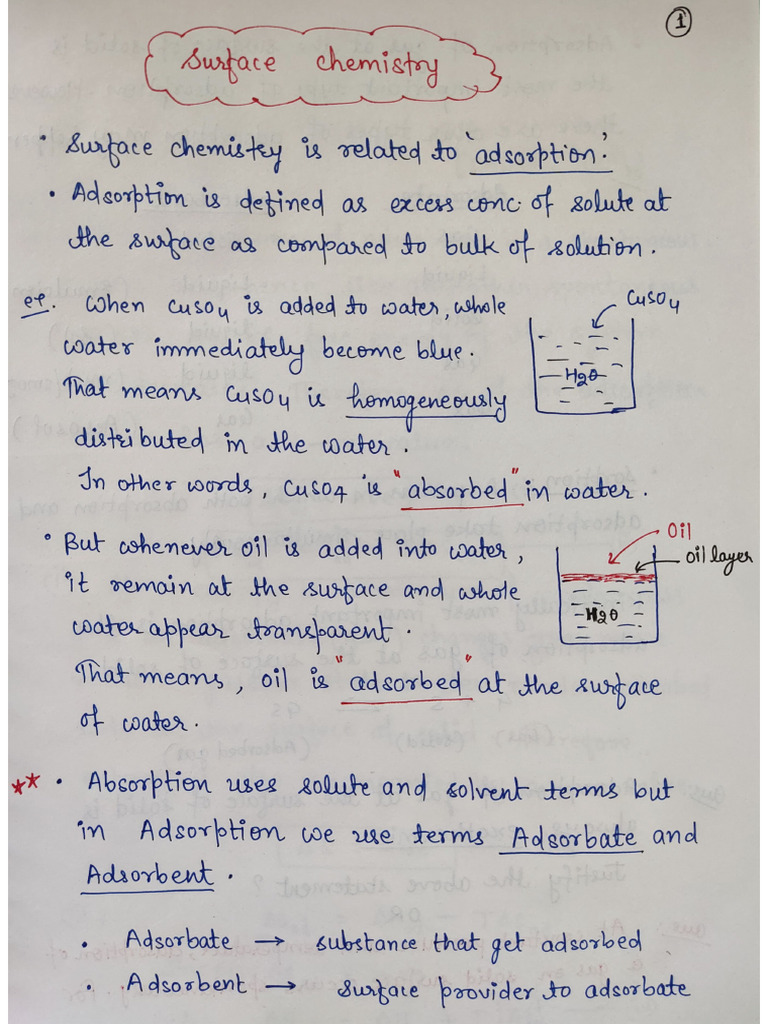 1
Surface chemistry
• Surface chemistry is related to 'adsorption'.
• Adsorption is defined as excess conc. of solute at
the surface as compared to bulk of solution.
eg. When CuSO4 is added to water, whole
water immediately become blue.
That means CuSO4 is homogeneously
distributed in the water.
In other words, CuSO4 is "absorbed" in water.
CuSO4
H2O
• But whenever oil is added into water,
it remain at the surface and whole
water appear transparent.
That means, oil is "adsorbed" at the surface
of water.
Oil
oil layer
H2O
** • Absorption uses solute and solvent terms but
in Adsorption we use terms Adsorbate and
Adsorbent.
• Adsorbate → substance that get adsorbed
• Adsorbent → surface provider to adsorbate